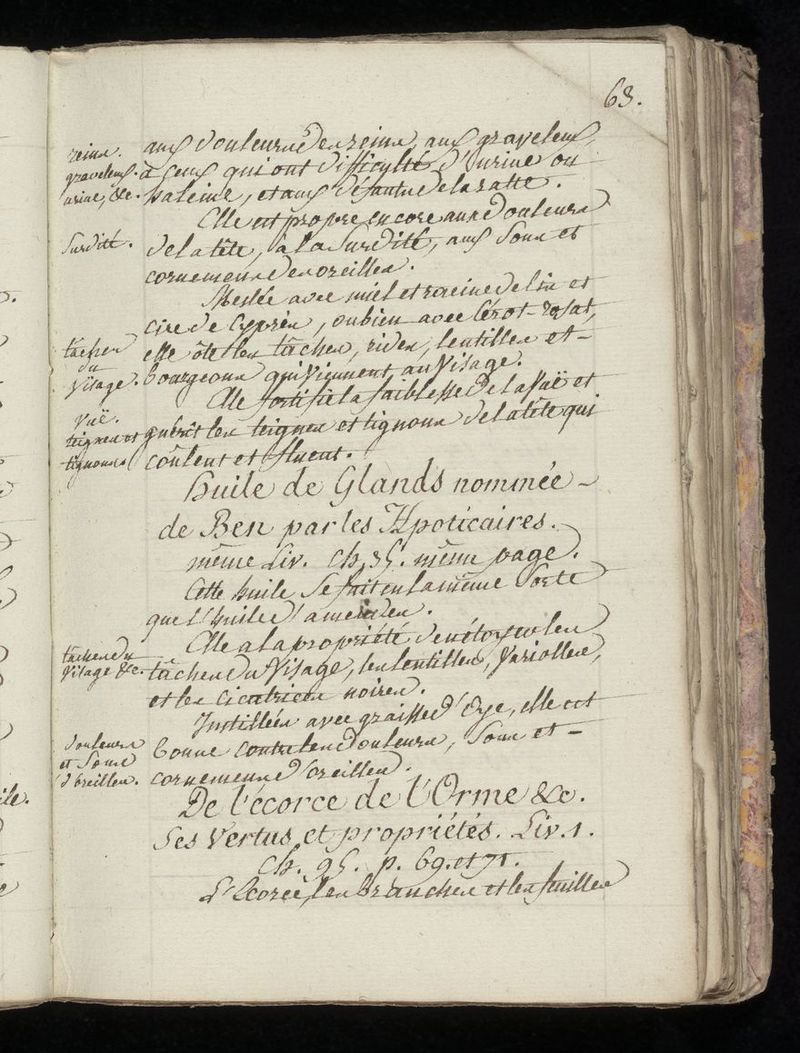 63.
reins. aux douleurs des reins, aux graveleux,
graveleux. à ceux qui ont difficulté d'urine ou
urine, &c. haleine, et aux défauts de la ratte.
Elle est propre encore aux douleurs
Surdité. de la tête, à la surdité, aux sons et
cornemens des oreilles.
Meslée avec miel et racine de lin et
cire de cyprès, ou bien avec Cérot-rosat,
taches elle ôte les tâches, rides, lentilles et-
du
Visage. bourgeons qui viennent au Visage.
Elle fortifie la faiblesse de la vuë et
vuë.
teignes et guérit les teignes et tignons de la tête qui
tignons. coulent et fluent.
Huile de Glands nommée-
de Ben par les Apoticaires.
même Liv. ch. 35. même page.
Cette huile se fait en la même sorte
que l'huile d'amendes.
Elle a la propriété de nétoyer les
tâches du
Visage &c. tâches du Visage, les lentilles, Varioles,
et les cicatrices noires.
Instillée avec graisse d'Oye, elle est
douleurs
et Sons bonne contre les douleurs, sons et-
d'oreilles. cornemens d'oreilles.
De l'écorce de l'Orme &c.
Ses Vertus et propriétés. Liv. 1.
ch. 95. p. 69. et 71.
L'Ecorce, les branches et les feuilles